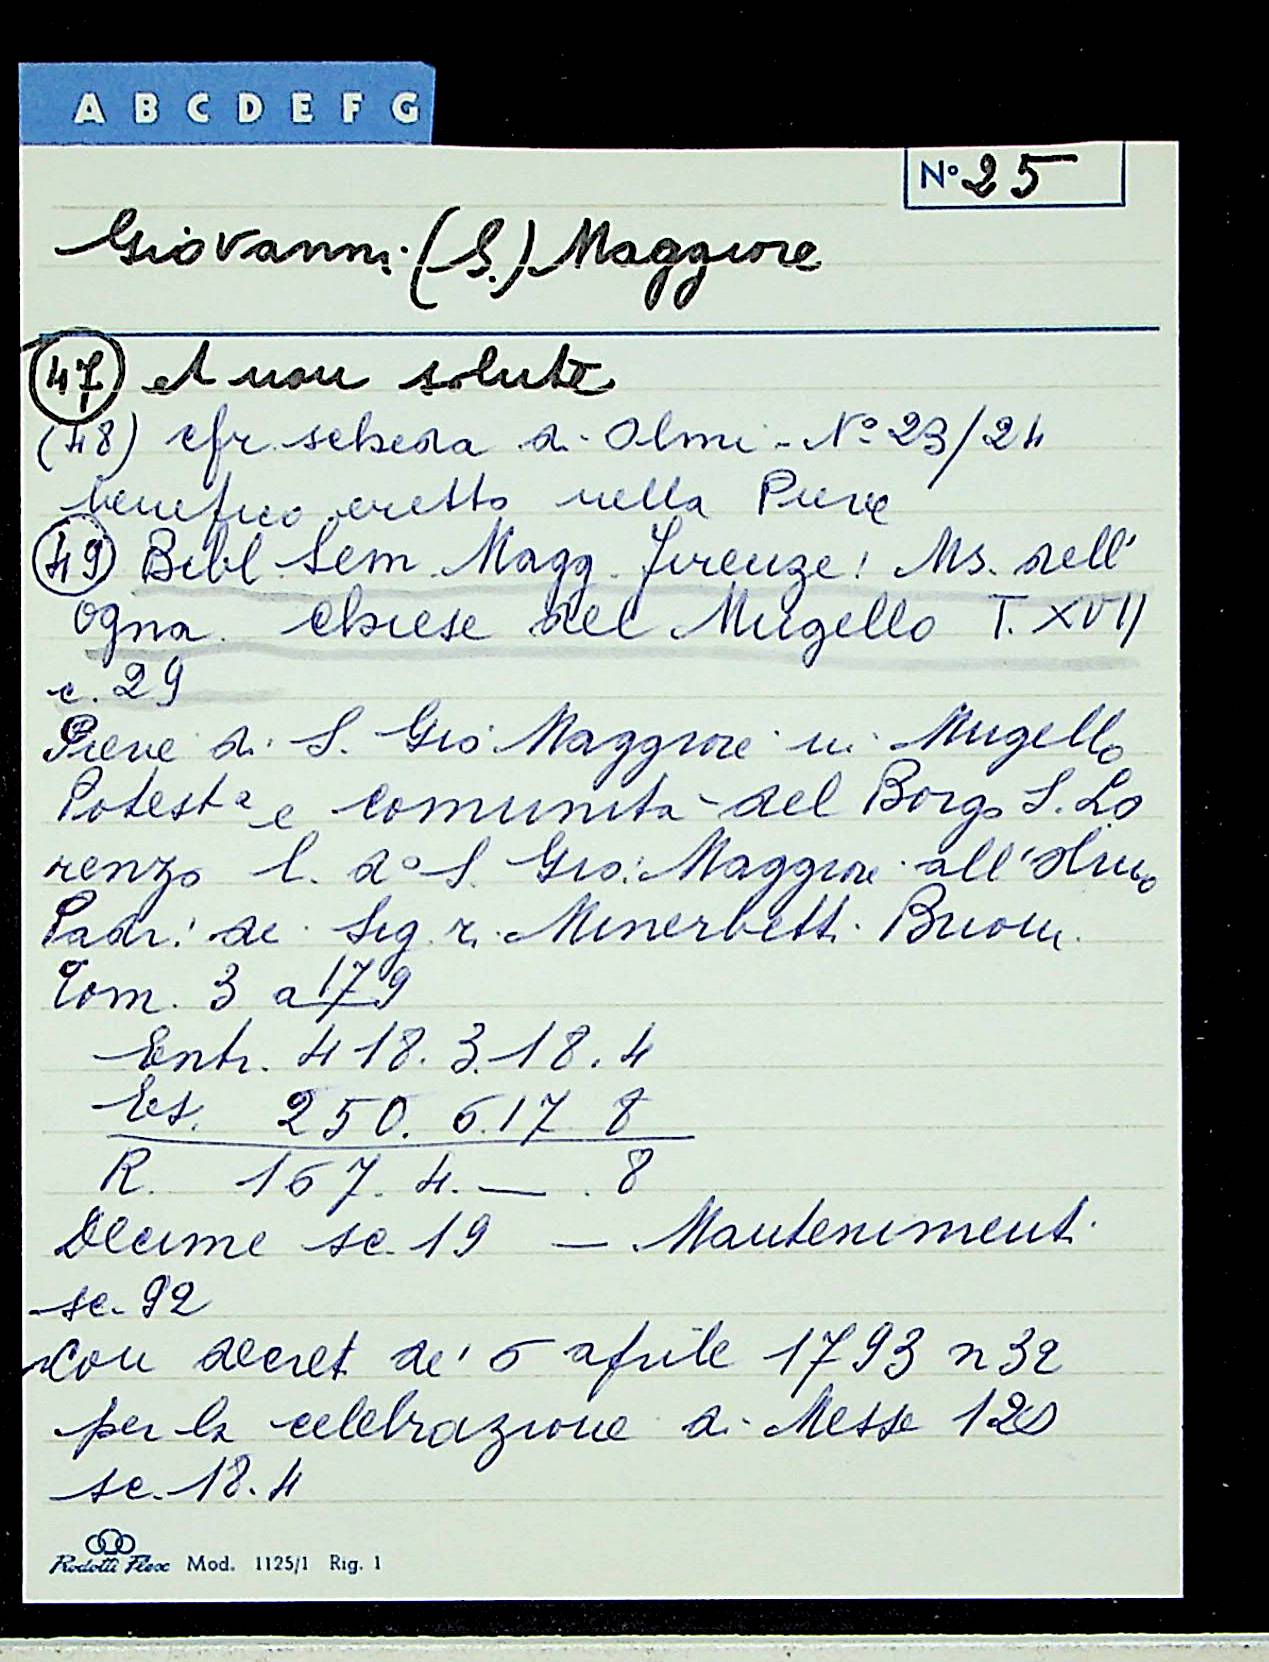 A B C D E F G
N° 25
Giovanni (S.) Maggiore
(47) et non solute
(48) cfr. scheda di Olmi - N° 23/24
benefico eretto nella Pieve
(49) Bibl. Sem. Magg. Firenze: Ms. dell'
Ogna. Chiese del Mugello T. XVII
c. 29
Pieve di S. Gio Maggiore in Mugello
Potestà e comunità del Borgo S. Lo
renzo l. d° S. Gio: Maggiore all'Olmo
Padri: de Sig. ri. Minerbetti Buon.
Tom. 3 a 179
Entr. 418. 3. 18. 4
Es. 250. 6. 17 8
R. 167. 4. — . 8
Decime sc. 19 — Mantenimenti
sc. 92
Con decret de' 6 aprile 1793 n 32
per la celebrazione di Messe 120
sc. 18. 4
Rodotti Flex Mod. 1125/1 Rig. 1